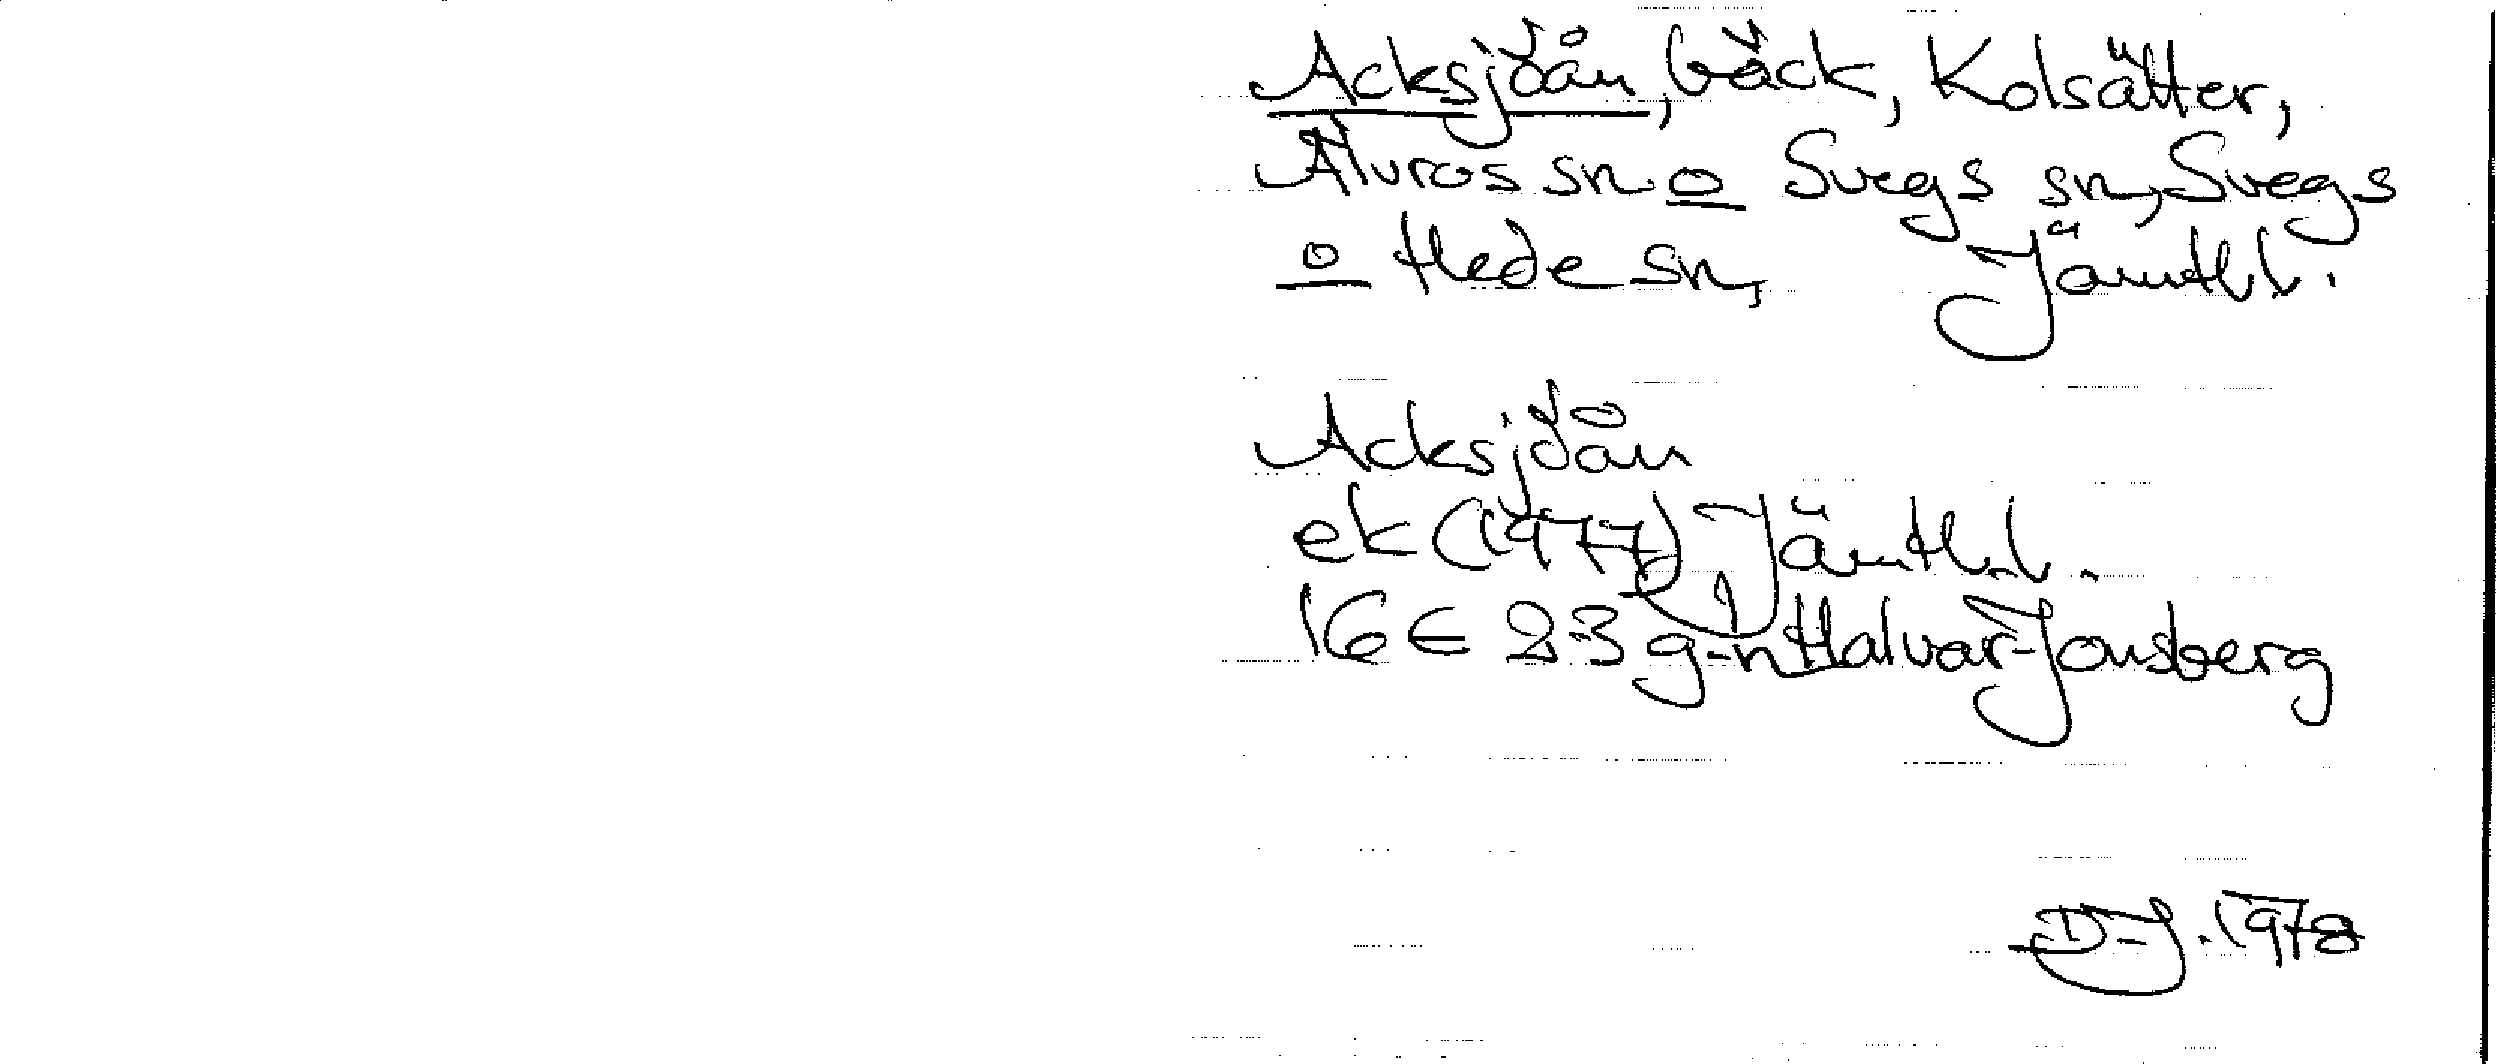 Acksjöån, bäck, Kolsätter,
Älvros sn o Svegs sn, Svegs
o Hede sn, Jämtl.
Acksjöån
ek (1977) Jämtl.l.
16E 2-3 g-n Halvar-Jonsberg
D-J. 1978